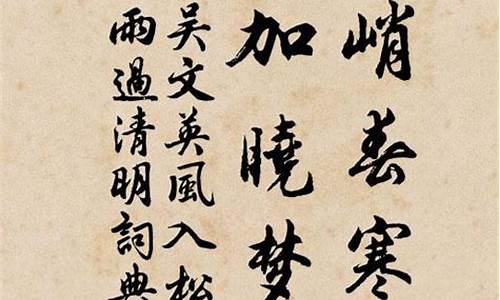 峭春寒
加曉梦
吴文英風入松
雨過清明詞典